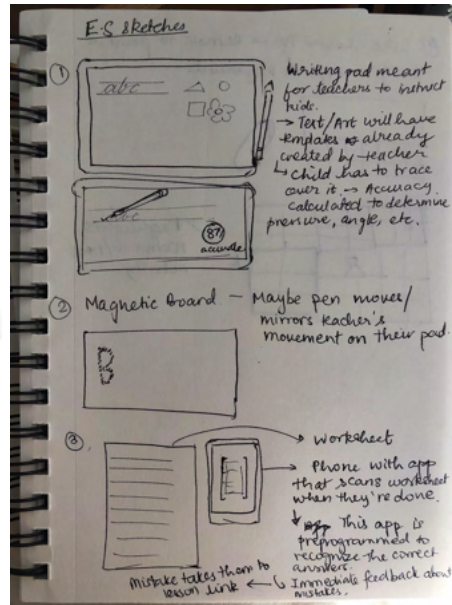 E.S Sketches
①
abc
Writing pad meant
for teachers to instruct
kids.
→ Text/Art will have
templates already
created by teacher
↳ Child has to trace
over it. → Accuracy
calculated to determine
pressure, angle, etc.
abc
87%
accurate
② Magnetic Board — Maybe pen moves/
mirrors teacher's
movement on their pad.
B
③.
→ Worksheet
→ Phone with app
that scans worksheet
when they're done.
↓ This app is
preprogrammed to
recognize the correct
answers.
↳ Immediate feedback about
mistakes.
Mistake takes them to
lesson link ←